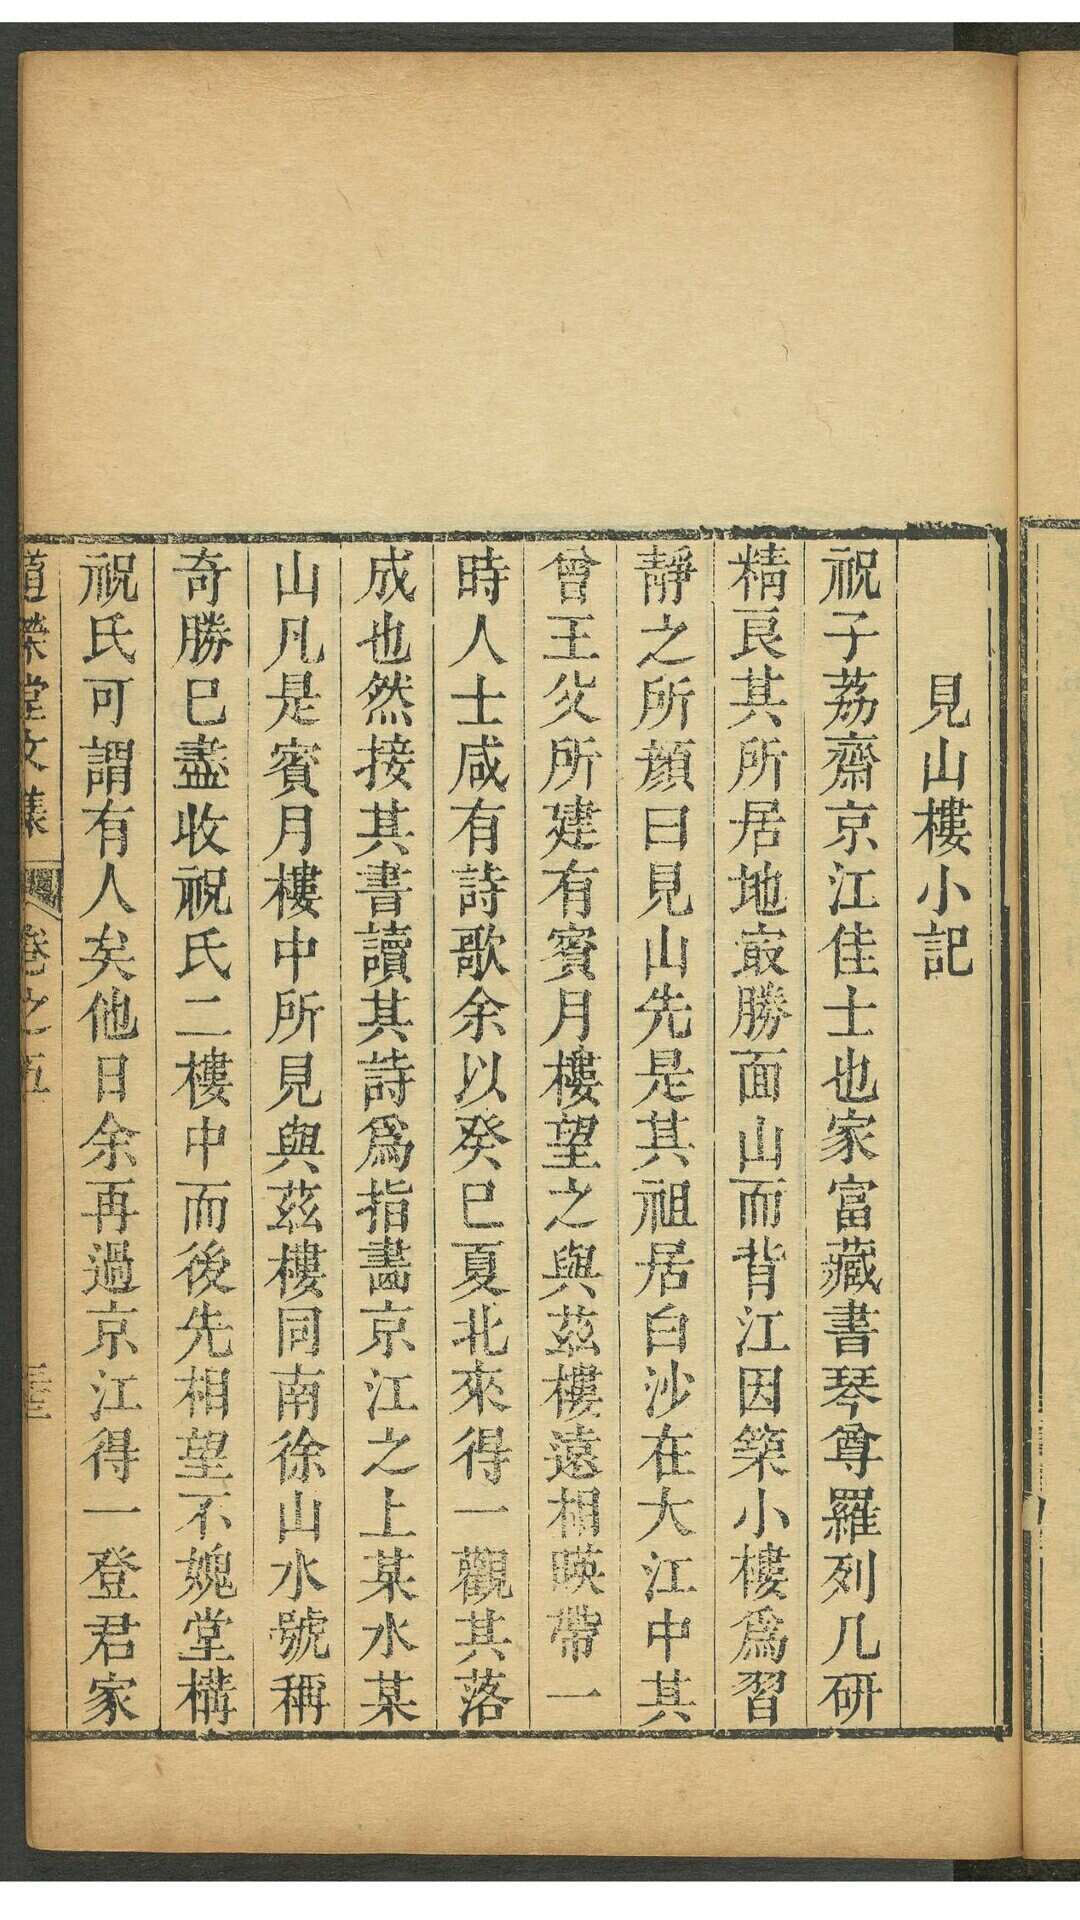 見山樓小記
祝子荔齋京江佳士也家富藏書琴尊羅列几研
精良其所居地㝡勝面山而背江因築小樓爲習
靜之所顏曰見山先是其祖居白沙在大江中其
曾王父所建有賓月樓望之與茲樓遠相暎帶一
時人士咸有詩歌余以癸巳夏北來得一觀其落
成也然接其書讀其詩爲指畵京江之上某水某
山凡是賓月樓中所見與茲樓同南徐山水號稱
奇勝巳盡收祝氏二樓中而後先相望不媿堂構
祝氏可謂有人矣他日余再過京江得一登君家
道榮堂文集 卷之五